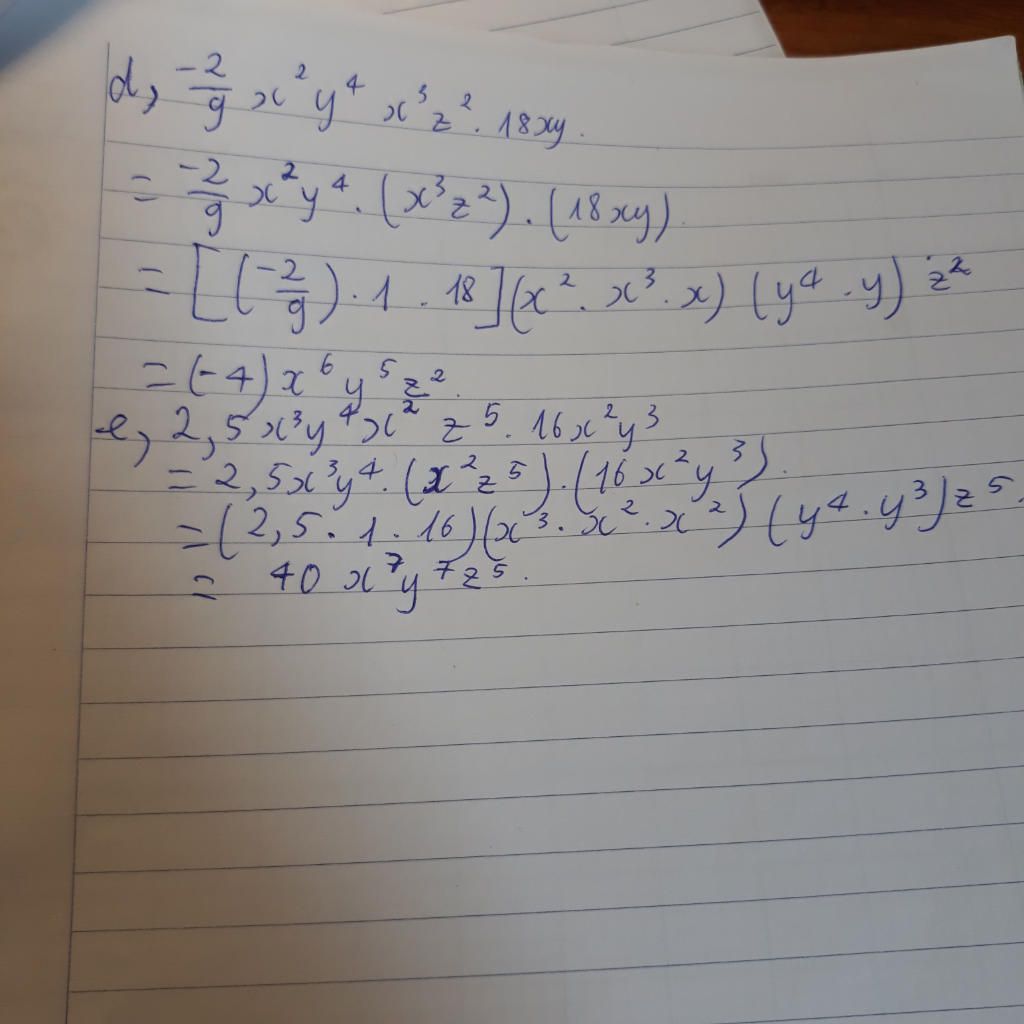 d, -2/9 x²y⁴ x³z². 18xy.
= -2/9 x²y⁴. (x³z²). (18xy).
= [(-2/9). 1 . 18](x². x³. x) (y⁴. y) z²
= (-4) x⁶y⁵z².
e, 2,5x³y⁴x² z⁵. 16x²y³
= 2,5x³y⁴. (x²z⁵). (16x²y³).
= (2,5. 1. 16)(x³. x². x²) (y⁴. y³)z⁵.
= 40 x⁷y⁷z⁵.